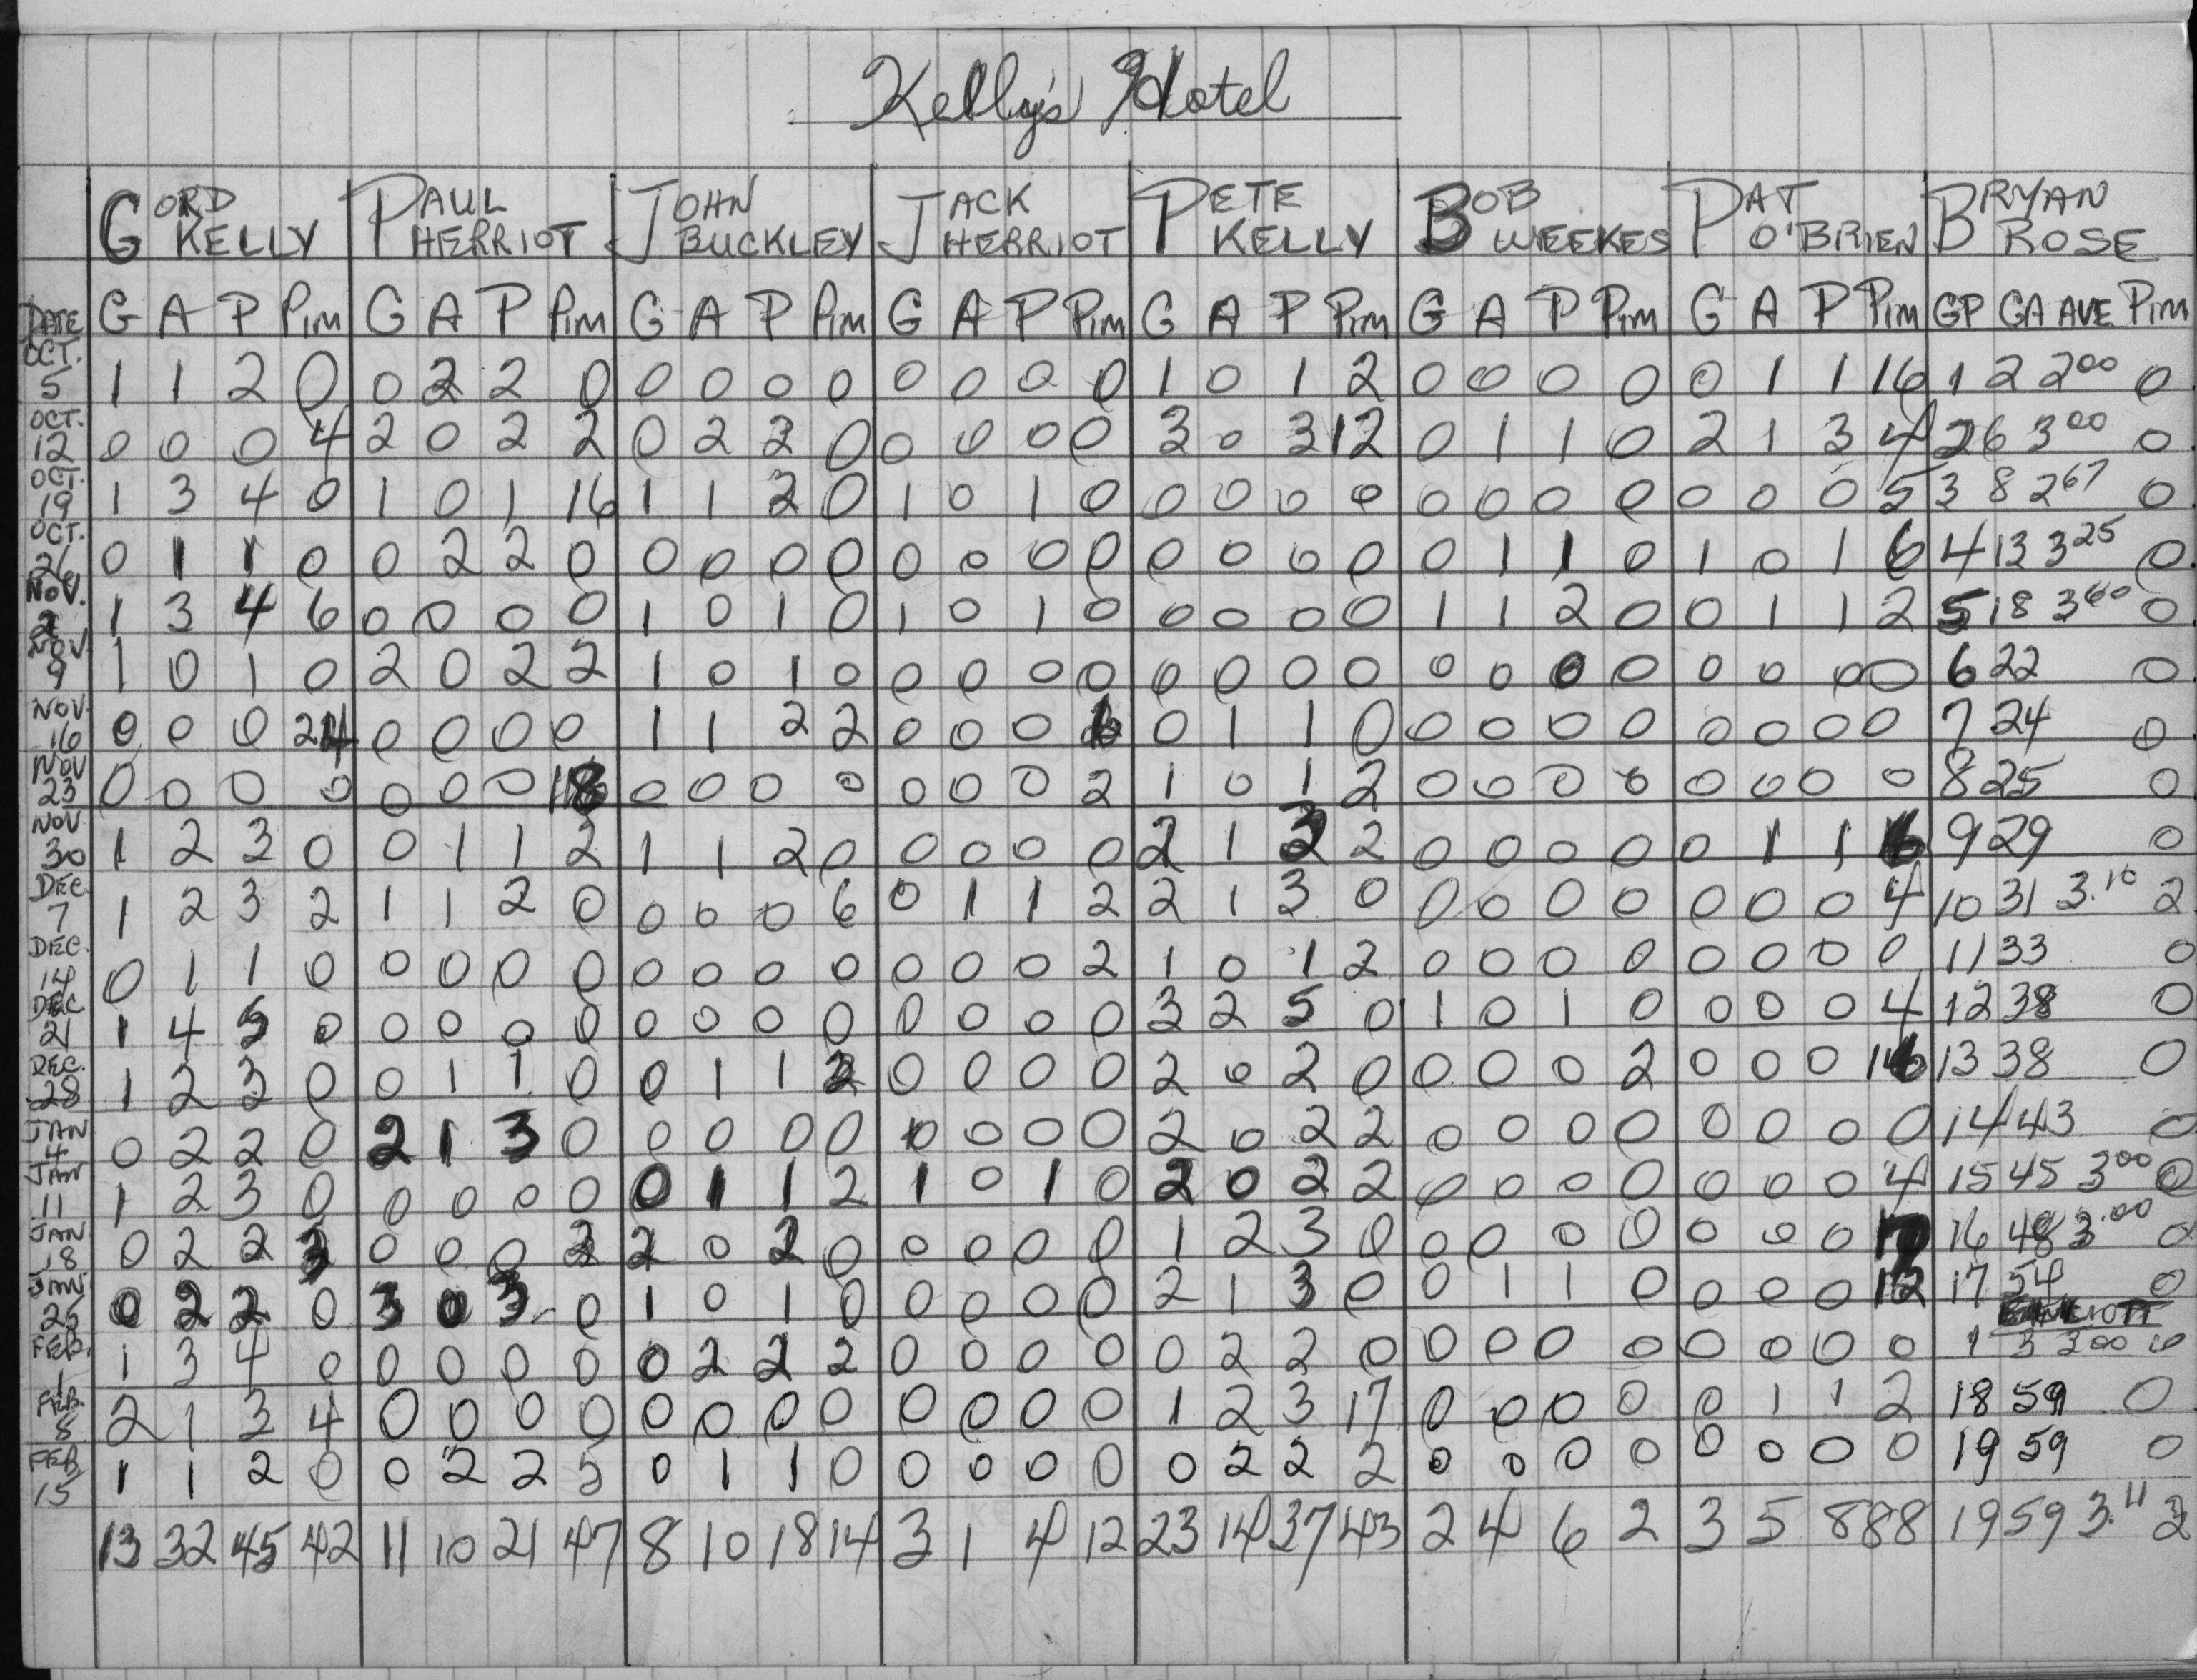 Kelly's Hotel
GORD KELLY PAUL HERRIOT JOHN BUCKLEY JACK HERRIOT PETE KELLY BOB WEEKES PAT O'BRIEN BRYAN ROSE
DATE G A P Pim G A P Pim G A P Pim G A P Pim G A P Pim G A P Pim G A P Pim GP GA AVE Pim
OCT. 5 1 1 2 0 0 2 2 0 0 0 0 0 0 0 0 0 1 0 1 2 0 0 0 0 0 1 1 16 1 2 2.00 0
OCT. 12 0 0 0 4 2 0 2 2 0 2 2 0 0 0 0 0 3 0 3 12 0 1 1 0 2 1 3 4 2 6 3.00 0
OCT. 19 1 3 4 0 1 0 1 16 1 1 2 0 1 0 1 0 0 0 0 0 0 0 0 0 0 0 0 5 3 8 2.67 0
OCT. 26 0 1 1 0 0 2 2 0 0 0 0 0 0 0 0 0 0 0 0 0 0 1 1 0 1 0 1 6 4 13 3.25 0
NOV. 2 1 3 4 6 0 0 0 0 1 0 1 0 1 0 1 0 0 0 0 0 1 1 2 0 0 1 1 2 5 18 3.60 0
NOV. 9 1 0 1 0 2 0 2 2 1 0 1 0 0 0 0 0 0 0 0 0 0 0 0 0 0 0 0 0 6 22 0
NOV. 16 0 0 0 24 0 0 0 0 1 1 2 2 0 0 0 6 0 1 1 0 0 0 0 0 0 0 0 0 7 24 0
NOV 23 0 0 0 0 0 0 0 18 0 0 0 0 0 0 0 2 1 0 1 2 0 0 0 0 0 0 0 0 8 25 0
NOV 30 1 2 3 0 0 1 1 2 1 1 2 0 0 0 0 0 2 1 3 2 0 0 0 0 0 1 1 16 9 29 0
DEC. 7 1 2 3 2 1 1 2 0 0 0 0 6 0 1 1 2 2 1 3 0 0 0 0 0 0 0 0 4 10 31 3.10 2
DEC. 14 0 1 1 0 0 0 0 0 0 0 0 0 0 0 0 2 1 0 1 2 0 0 0 0 0 0 0 0 11 33 0
DEC 21 1 4 5 0 0 0 0 0 0 0 0 0 0 0 0 0 3 2 5 0 1 0 1 0 0 0 0 4 12 38 0
DEC. 28 1 2 3 0 0 1 1 0 0 1 1 2 0 0 0 0 2 0 2 0 0 0 0 2 0 0 0 16 13 38 0
JAN 4 0 2 2 0 2 1 3 0 0 0 0 0 0 0 0 0 2 0 2 2 0 0 0 0 0 0 0 0 14 43 0
JAN 11 1 2 3 0 0 0 0 0 0 1 1 2 1 0 1 0 2 0 2 2 0 0 0 0 0 0 0 4 15 45 3.00 0
JAN 18 0 2 2 0 0 0 2 2 0 2 0 0 0 0 0 1 2 3 0 0 0 0 0 0 0 0 16 48 3.00 0
JAN 25 0 2 2 0 3 0 3 0 1 0 1 0 0 0 0 0 2 1 3 0 0 1 1 0 0 0 0 12 17 54 0
FEB. 1 1 3 4 0 0 0 0 0 0 2 2 2 0 0 0 0 0 2 2 0 0 0 0 0 0 0 0 0 1 3 3.00 0
FEB. 8 2 1 3 4 0 0 0 0 0 0 0 0 0 0 0 0 1 2 3 17 0 0 0 0 0 1 1 2 18 59 0
FEB. 15 1 1 2 0 0 2 2 5 0 1 1 0 0 0 0 0 0 2 2 2 0 0 0 0 0 0 0 0 19 59 0
13 32 45 42 11 10 21 47 8 10 18 14 3 1 4 12 23 14 37 43 2 4 6 2 3 5 8 88 19 59 3.11 2